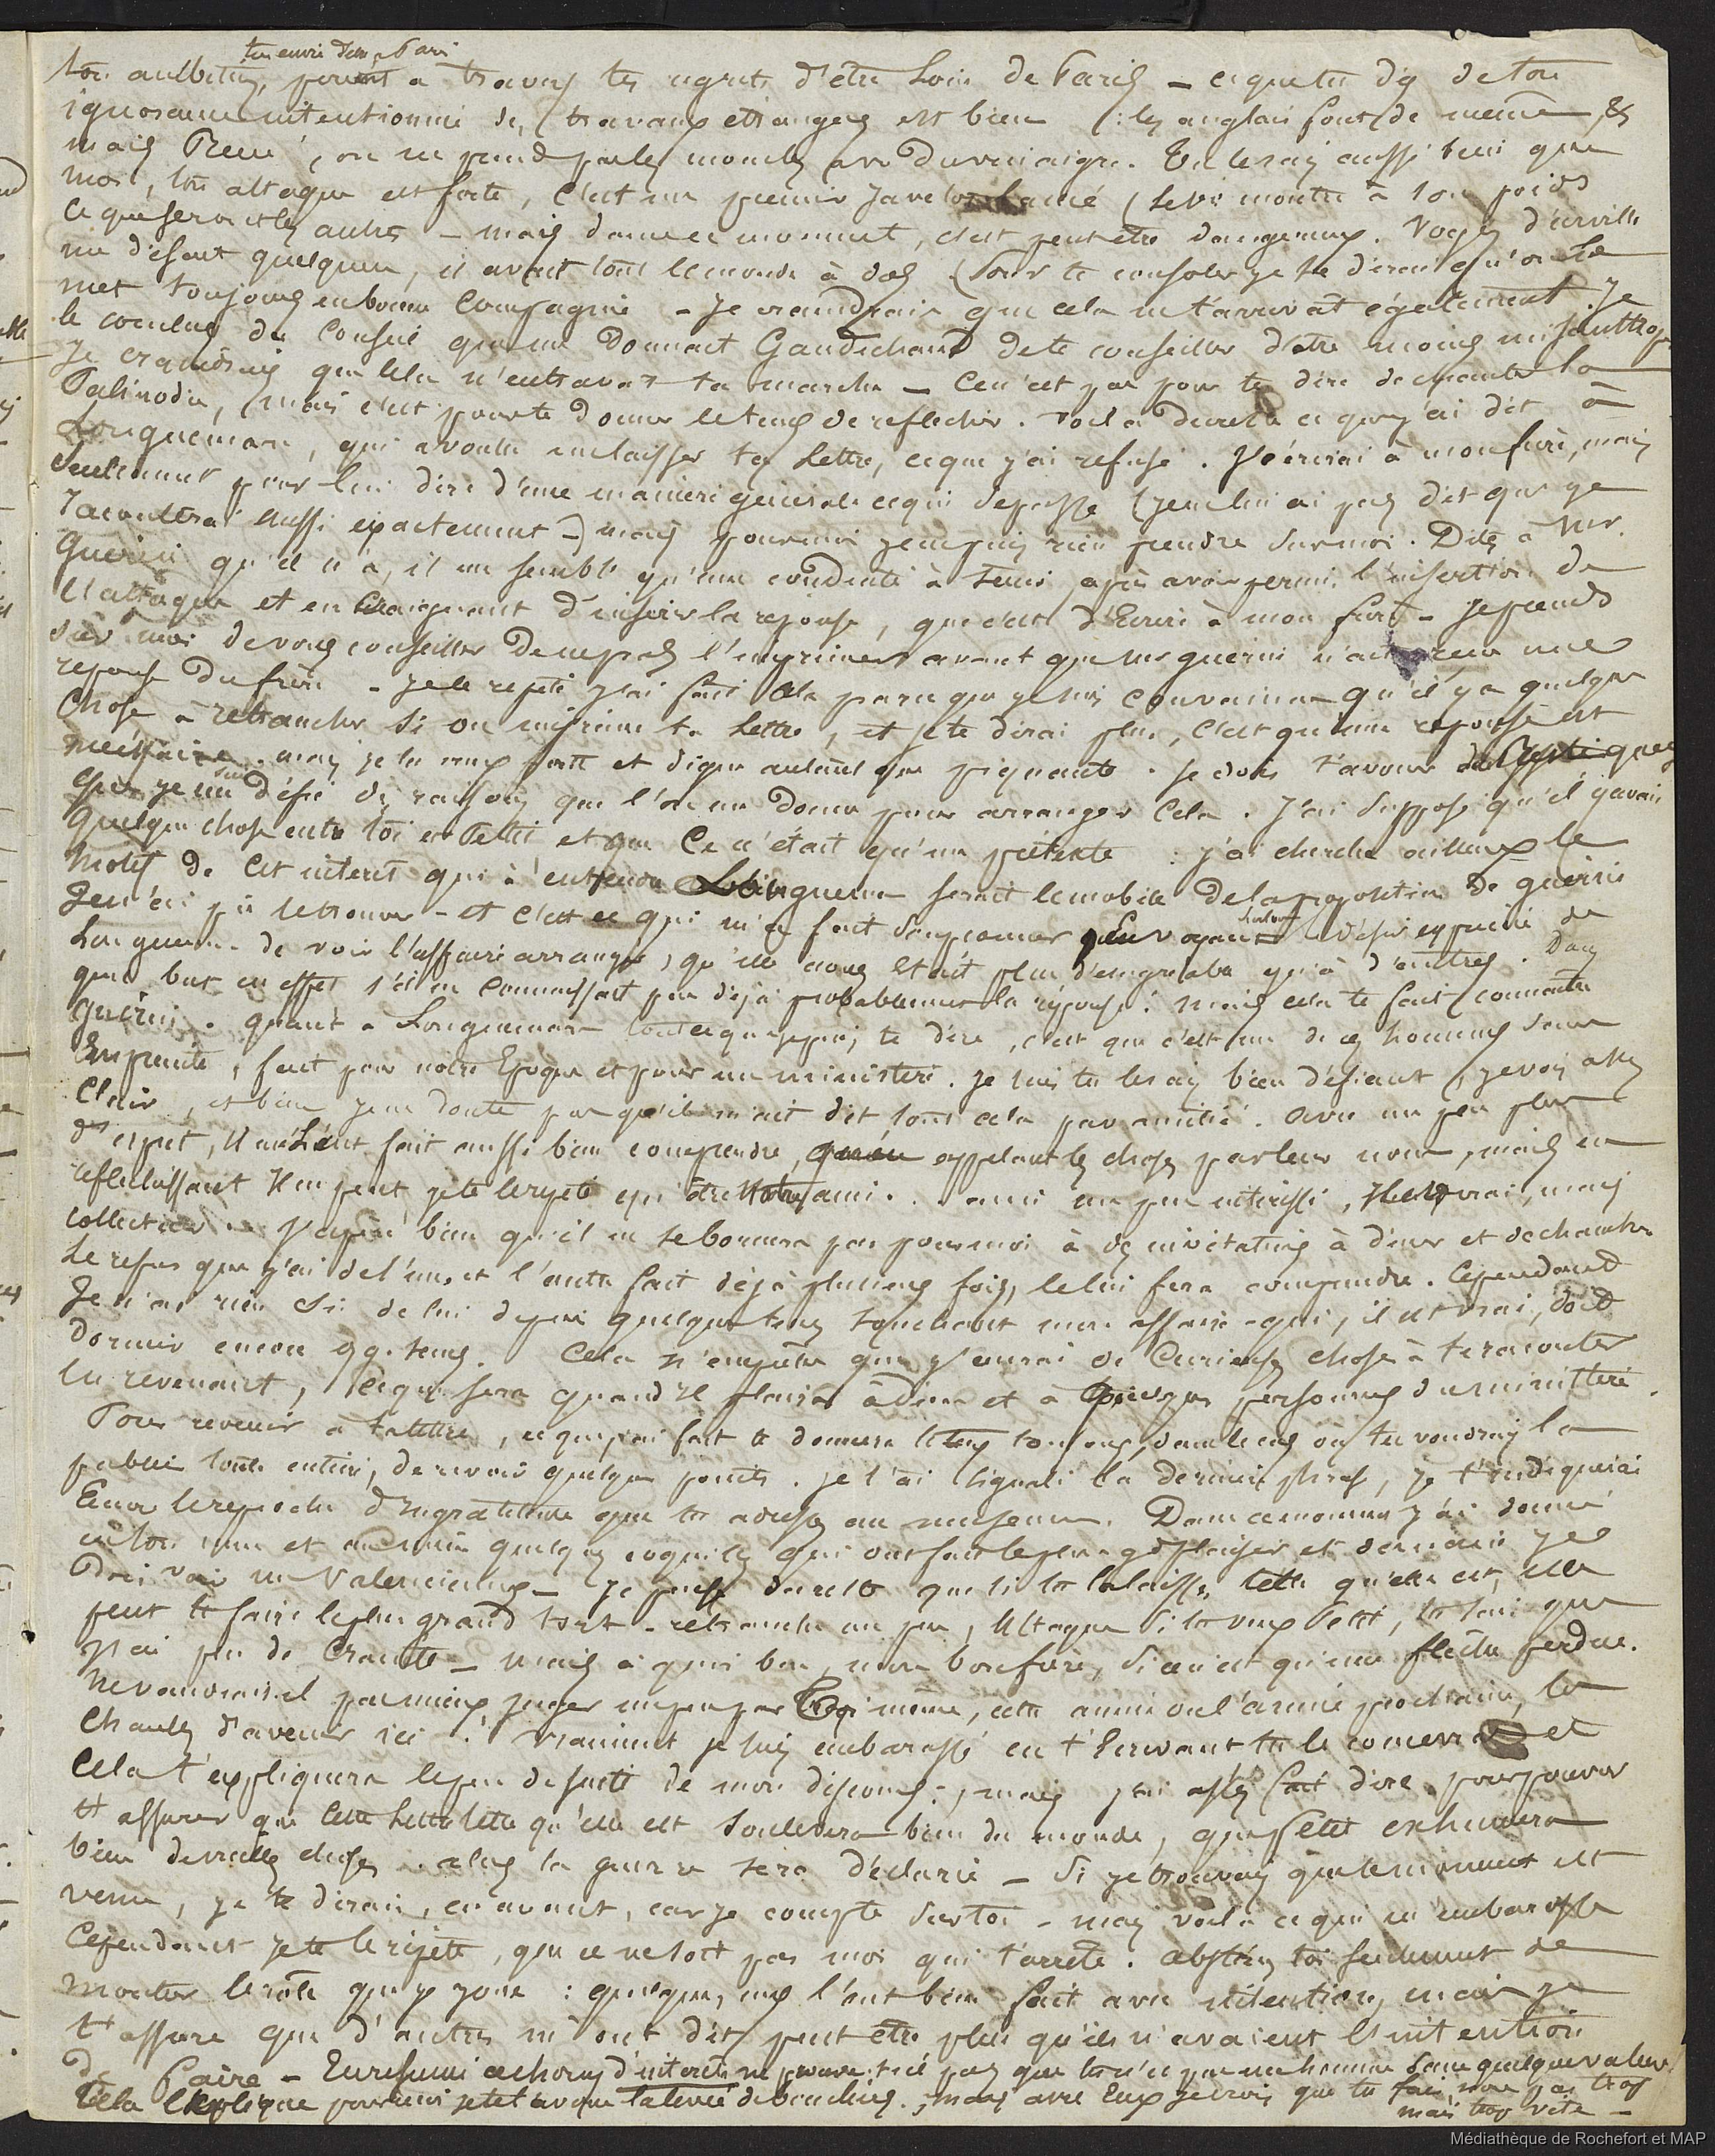 ton ambition, percent à travers tes regrets d'être loin de Paris – ce que tu dis de ton
ignorance intentionnée des travaux étrangers est bien (: les anglais font de même, &
mais René, on ne prend pas les mouches avec du vinaigre. Tu le sais aussi bien que
moi, ton attaque est forte, c'est un premier javelot lancé
ce que seront les autres – mais dans ce moment, c'est peut-être dangereux. Voyez d'urville
me défend quelqu'un, il avait tout le monde à dos (Pour te consoler je te dirai qu'on te
met toujours en bonne Compagnie – Je craindrais que cela ne t'arrivat également. Je
le conclus du Conseil que me donnait Gaudichaud de te conseiller d'être moins misanthrope
Je craindrais que cela n'entravat ta marche – Ce n'est pas pour te dire de chanter la
Palinodie, mais c'est pour te donner le tems de reflechir. Voilà du reste ce que j'ai dit à
Longuemare, qui a voulu me laisser ta lettre, ce que j'ai refusé. J'écrirai à mon frère, mais
seulement pour lui dire d'une manière générale ce qui se passe (je ne lui ai pas dit que je
raconterai aussi exactement –) mais pour moi je ne puis rien prendre sur moi. Dites à Mr.
Guérin qu'il n'a, il me semble qu'une conduite à tenir, après avoir permis l'insertion de
l'attaque et en craignant d'insérer la reponse, que c'est d'Ecrire à mon frère – Je prends
sur moi de vous conseiller de ne pas l'imprimer avant que Mr guerin n'ait reçu une
reponse du frère – Je le repete j'ai fait cela parce que je suis convaincu qu'il y a quelque
Chose à retrancher si on imprime ta lettre, et je te dirai plus, c'est qu'une reponse est
nécessaire. mais je la veux forte et digne autant que piquante. Je dois t'avouer
que je me suis défié des raisons que l'on me donne pour arranger Cela. J'ai supposé qu'il y avait
quelque chose entre toi et Petit et que Ce n'était qu'un prétexte : j'ai cherché ailleurs le
motif de cet interet qui à entendre Longuemare serait le mobile de la proposition de guerin
Je n'ai pu le trouver – et c'est ce qui m'a fait soupçonner En voyant surtout le desir exprimé de
Longuemare de voir l'affaire arrangée, qu'elle nous était plus désagréable qu'à d'autres. Dans
quel but en effet s'il ne connaissait pas déjà probablement la réponse. mais cela te fait connaitre
guérin. Quant à Longuemare tout ce que je puis te dire, c'est que c'est un de ces hommes sans
Empreinte, fait pour notre Epoque et pour un ministère. Je suis tu le sais bien défiant, je vois assez
Clair, et bien je ne doute pas qu'il m'ait dit tout cela par amitié. avec un peu plus
d'esprit, il me l'eut fait aussi bien comprendre, qu'en appelant les choses par leur nom, mais en
reflechissant il ne peut je te le repete qu'être notre ami. . ami un peu intéressé, il est vrai, mais
collection . . J'espère bien qu'il ne se bornera pas pour moi à des invitations à dîner et de chambre
Le refus que j'ai de l'une et l'autre fait déjà plusieurs fois, le lui fera comprendre. Cependant
Je n'ai rien su de lui depuis quelque tems touchant mon affaire – qui, il est vrai, doit
dormir encore qq. tems. Cela n'empêche que j'aurai de Curieuses choses à te raconter
en revenant, ce qui sera quand il plaira à Dieu et à quelques personnes du ministère.
Pour revenir à ta lettre, ce que j'ai fait te donnera le tems toujours, dans le cas où tu voudrais la
publier toute entière, de revoir quelques points. Je t'ai signalé la dernière phrase, je t'indiquerai
Encore le reproche d'Ingratitude que tu adresses au museum. Dans ce moment j'ai donné
en ton nom et au mien quelques coquilles qui ont fait le plus gd plaisir et demain je
Dois voir Mr Valenciennes – Je pense du reste que si tu la laisses telle qu'elle est, elle
peut te faire le plus grand tort – retranche un peu, attaque si tu veux Petit, tu sais que
j'ai peu de Crainte – mais à quoi bon, mon bon frère, si ce n'est qu'une flèche perdue.
Ne vaudrait-il pas mieux juger un peu par Toi même, cette année ou l'année prochaine, les
Chances d'avenir ici. Vraiment je suis embarassé en t'Ecrivant tu le concevras et
Cela t'expliquera le peu de suite de mon discours :, mais j'en assez fait dire pour pouvoir
t'assurer que cette lettre telle qu'elle est soulevera bien du monde, que Petit exhumera
bien de vieilles choses . alors la guerre sera déclarée – Si je trouvais que le moment est
venu, je te dirais, en avant, car je compte sur toi – mais voilà ce qui m'embarasse
Cependant je te le repette, que ce ne soit pas moi qui t'arrête. abstiens toi seulement de
montrer le rôle que je joue : quelques uns l'ont bien fait avec intention, mais je
t'assure que d'autres m'ont dit peut être plus qu'ils n'avaient l'intention
de faire – En resumé ce chorus d'interets ne prouve-t-il pas que tu n'es pas un homme sans quelque valeur
Cela l'explique pour moi je te l'avoue la levée de boucliers. mais avec Eux je crois que tu fais, non pas trop
mais trop vite –
tes envie d'aller Paris
Médiathèque de Rochefort et MAP